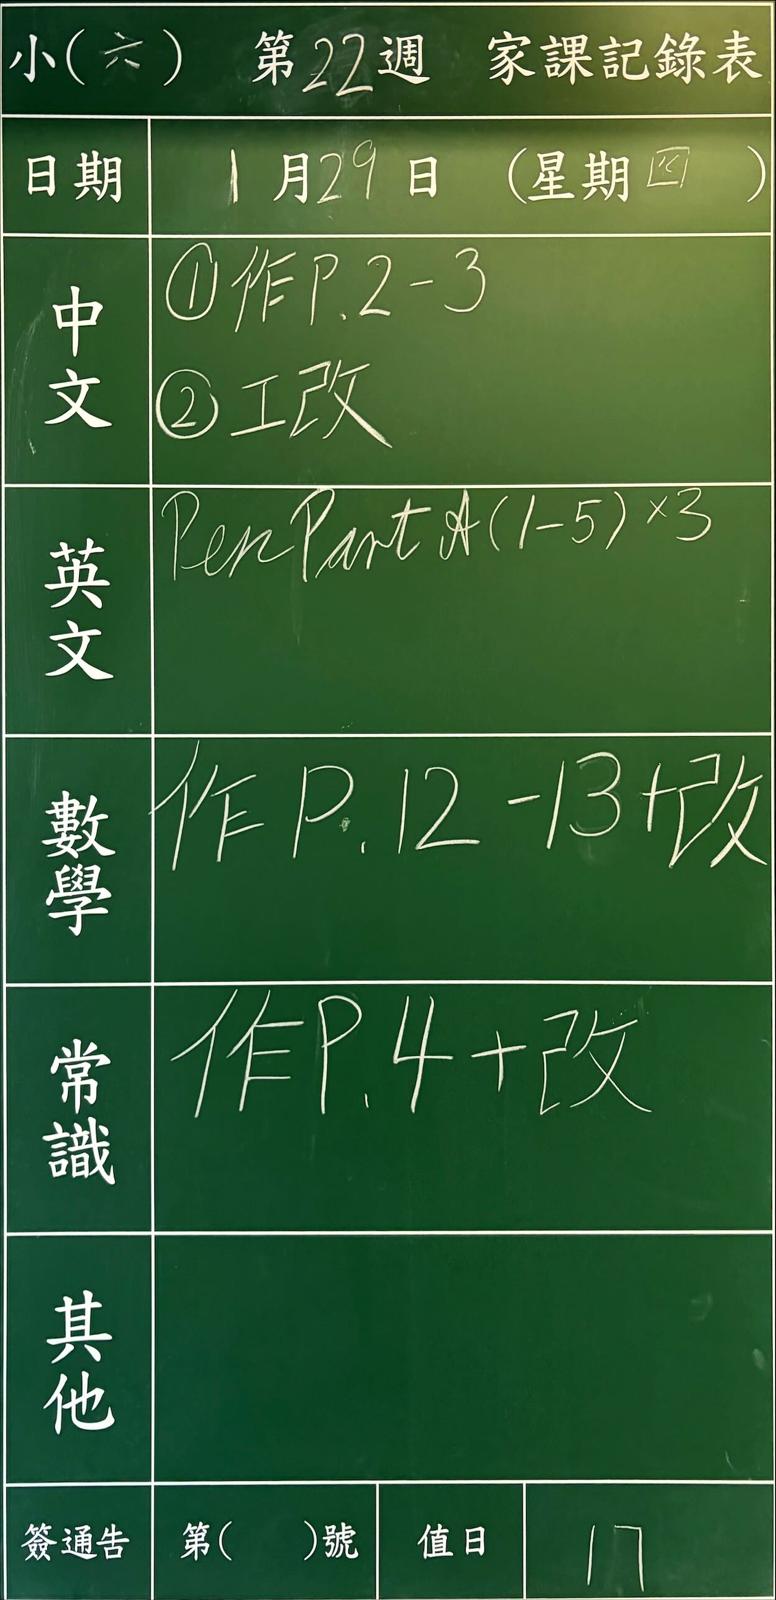 小(六) 第22週 家課記錄表
日期 1月29日 (星期四)
中文 ①作P.2-3
②工改
英文 Pen Part A(1-5)×3
數學 作P.12-13+改
常識 作P.4+改
其他
簽通告 第( )號 值日 17